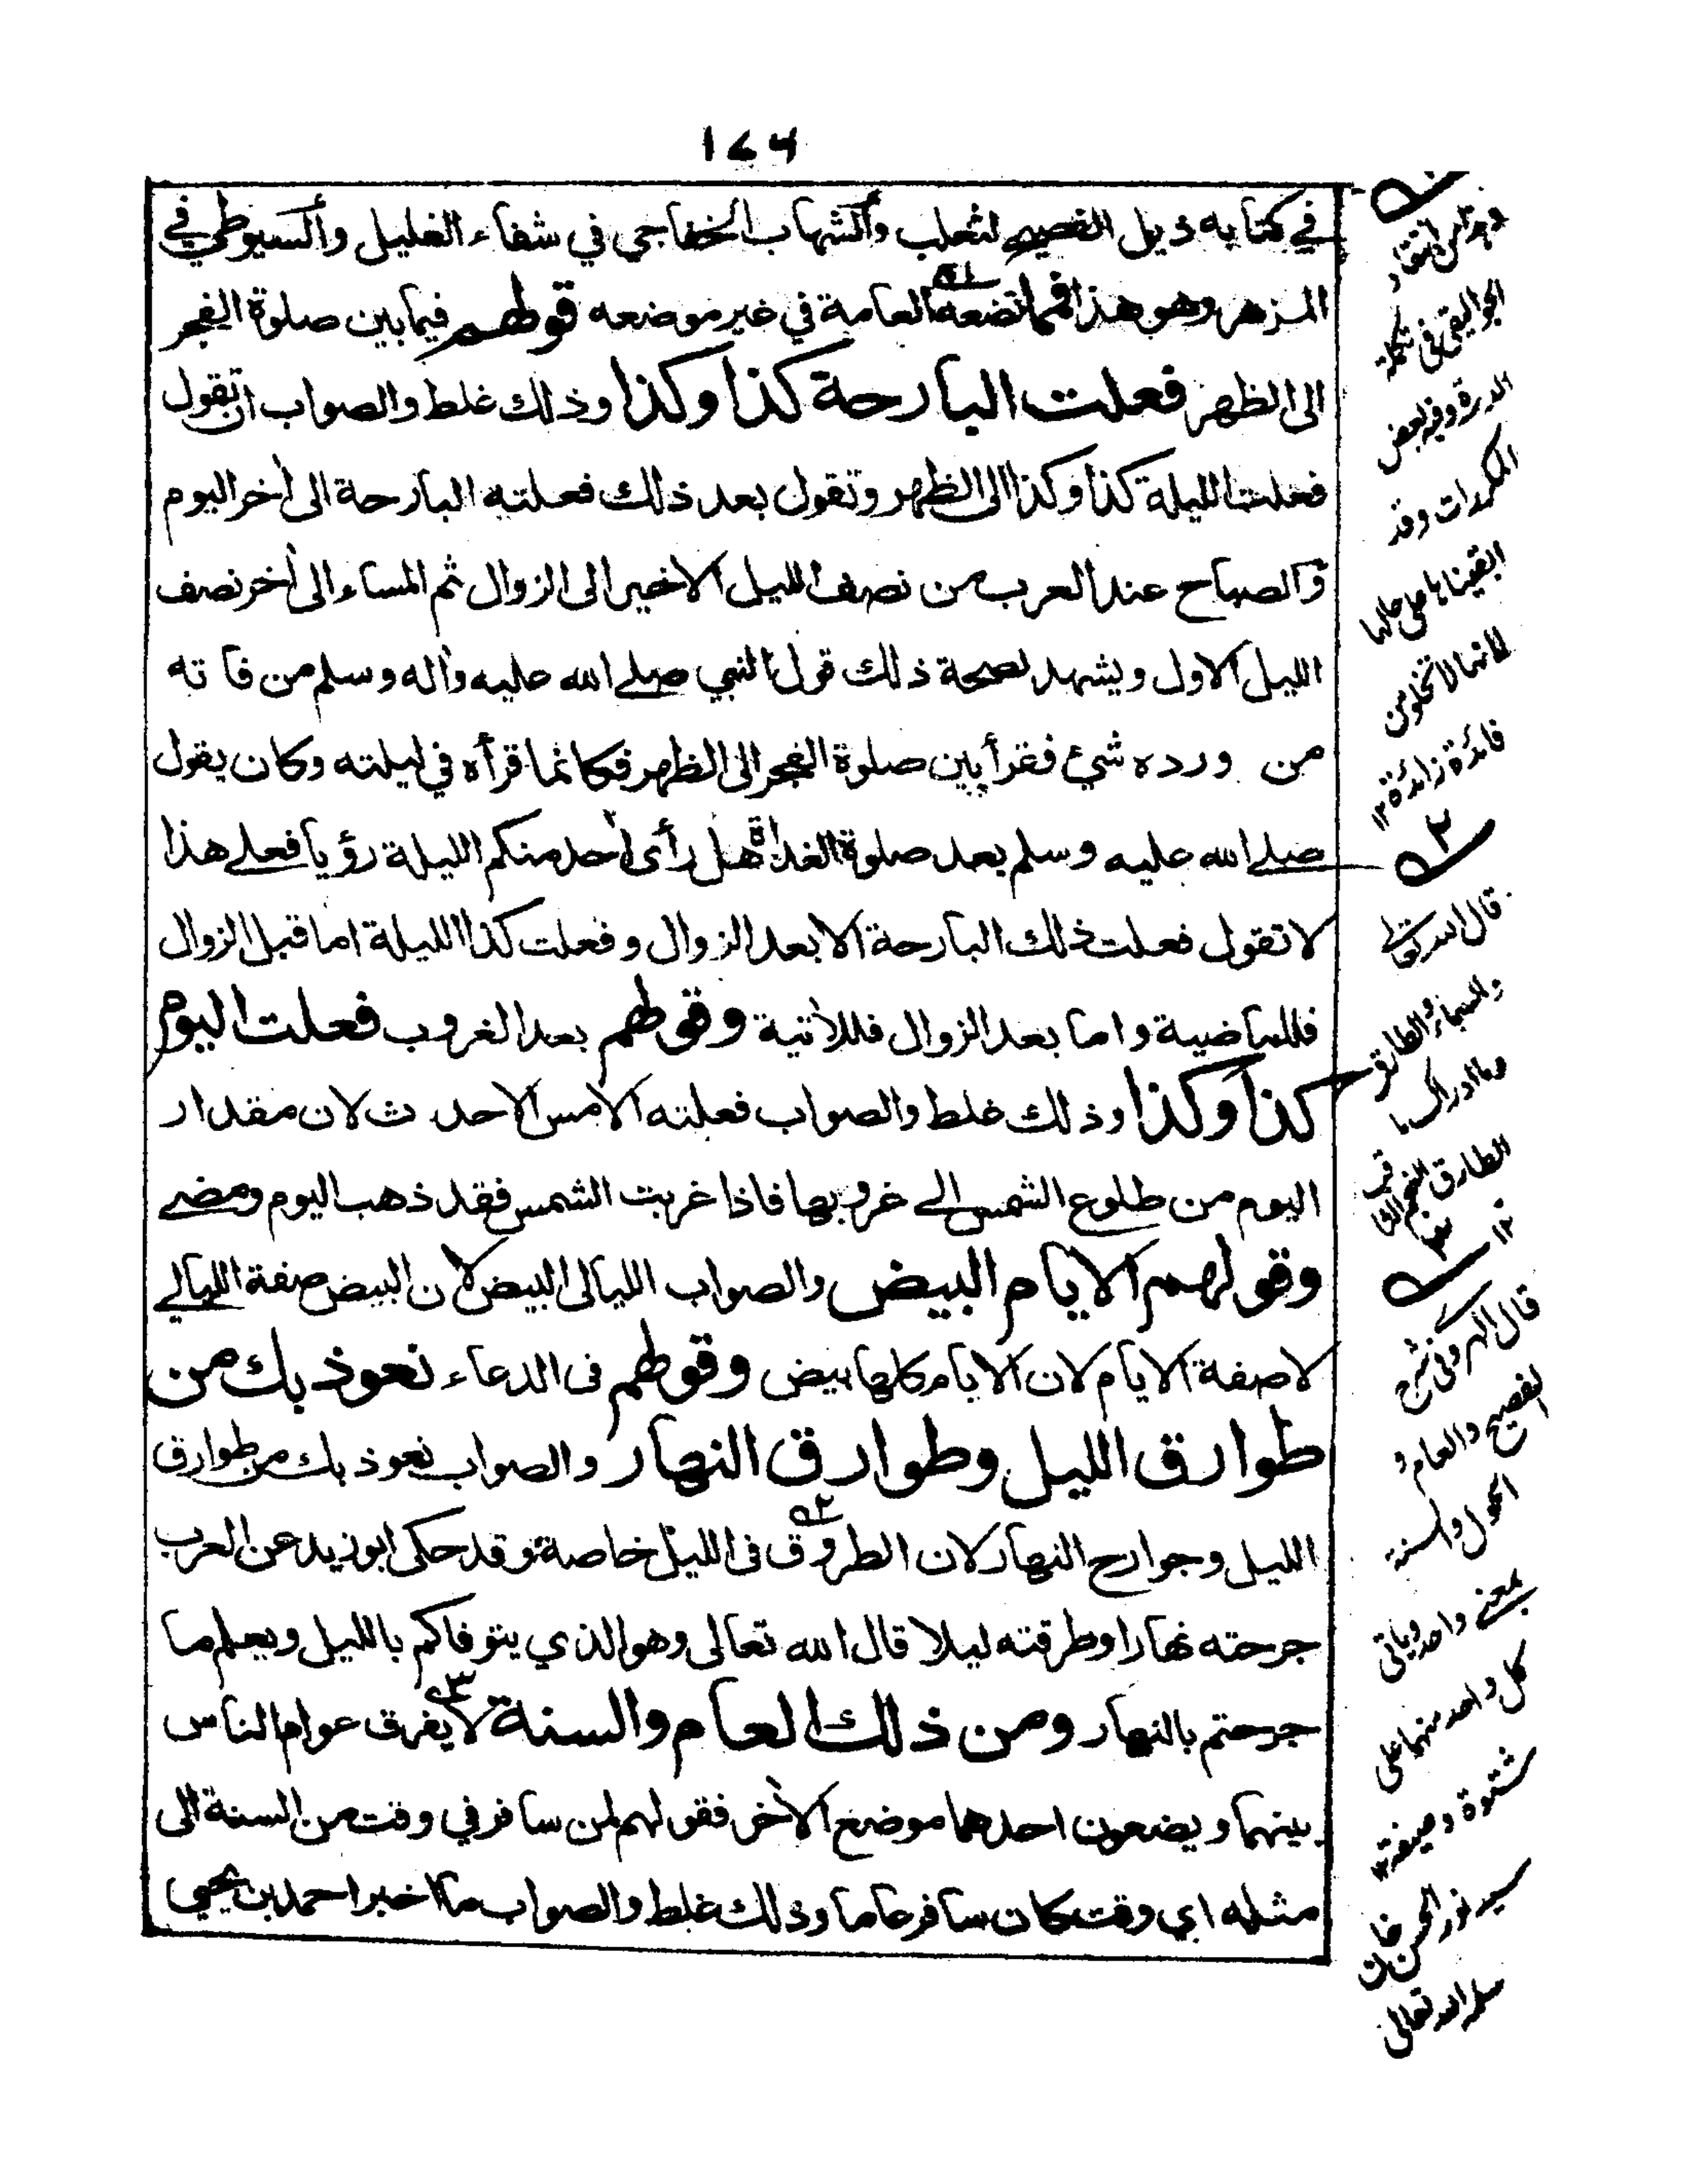 ١٧٦
في كتابه ذيل الفصيح لثعلب وألشهاب الخفاجي في شفاء الغليل وألسيوطي في
المزهر وهو هذا فمما تضعه العامة في غير موضعه قولهم فيما بين صلوة الفجر
الى الظهر فعلت البارحة كذا وكذا وذلك غلط والصواب ان تقول
فعلت الليلة كذا وكذا الى الظهر وتقول بعد ذلك فعلته البارحة الى أخر اليوم
والصباح عند العرب من نصف الليل الاخير الى الزوال ثم المساء الى أخر نصف
الليل الاول ويشهد لصحة ذلك قول النبي صلے الله عليه وأله وسلم من فاته
من ورده شيئ فقرأ بين صلوة الفجر الى الظهر فكانما قرأه في ليلته وكان يقول
صلے الله عليه وسلم بعد صلوة الغداة هل رأى أحد منكم الليلة رؤيا فعلے هذا
لا تقول فعلت ذلك البارحة الا بعد الزوال وفعلت كذا الليلة اما قبل الزوال
فللماضية واما بعد الزوال فللأتية وقولهم بعد الغروب فعلت اليوم
كذا وكذا وذلك غلط والصواب فعلته الامس الاحدث لان مقدار
اليوم من طلوع الشمس الے غروبها فاذا غربت الشمس فقد ذهب اليوم ومضے
وقولهم الايام البيض والصواب الليالى البيض لان البيض صفة الليالے
لا صفة الايام لان الايام كلها بيض وقولهم فى الدعاء نعوذ بك من
طوارق الليل وطوارق النهار والصواب نعوذ بك من طوارق
الليل وجوارح النهار لان الطروق فى الليل خاصة وقد حكى ابو زيد عن العرب
جرحته نهارا وطرقته ليلا قال الله تعالى وهو الذي يتوفاكم بالليل ويعلم ما
جرحتم بالنهار ومن ذلك العام والسنة لا يفرق عوام الناس
بينهما ويضعون احدهما موضع الأخر فقولهم لمن سافر في وقت من السنة الى
مثله اي وقت كان سافر عاما وذلك غلط والصواب ما اخبر احمد بن يحيى
انتقاد
الجواليقى فى تكملة
الدرة وفيه بعض
المكررات وقد
ابقيناها على حالها
لانها لا تخلو من
فائدة زائدة ١٢
٢
قال الله تعالے
والسماء والطارق
وما ادراك ما
الطارق النجم الثاقب
١٢
٣
قال الهروى فى شرح
الفصيح والعام و
الحول والسنة
بمعنے واحد وياتى
كل واحد منهما على
شتوة وصيفة ١٢
سيد نور الحسن خان
سلمه الله تعالى